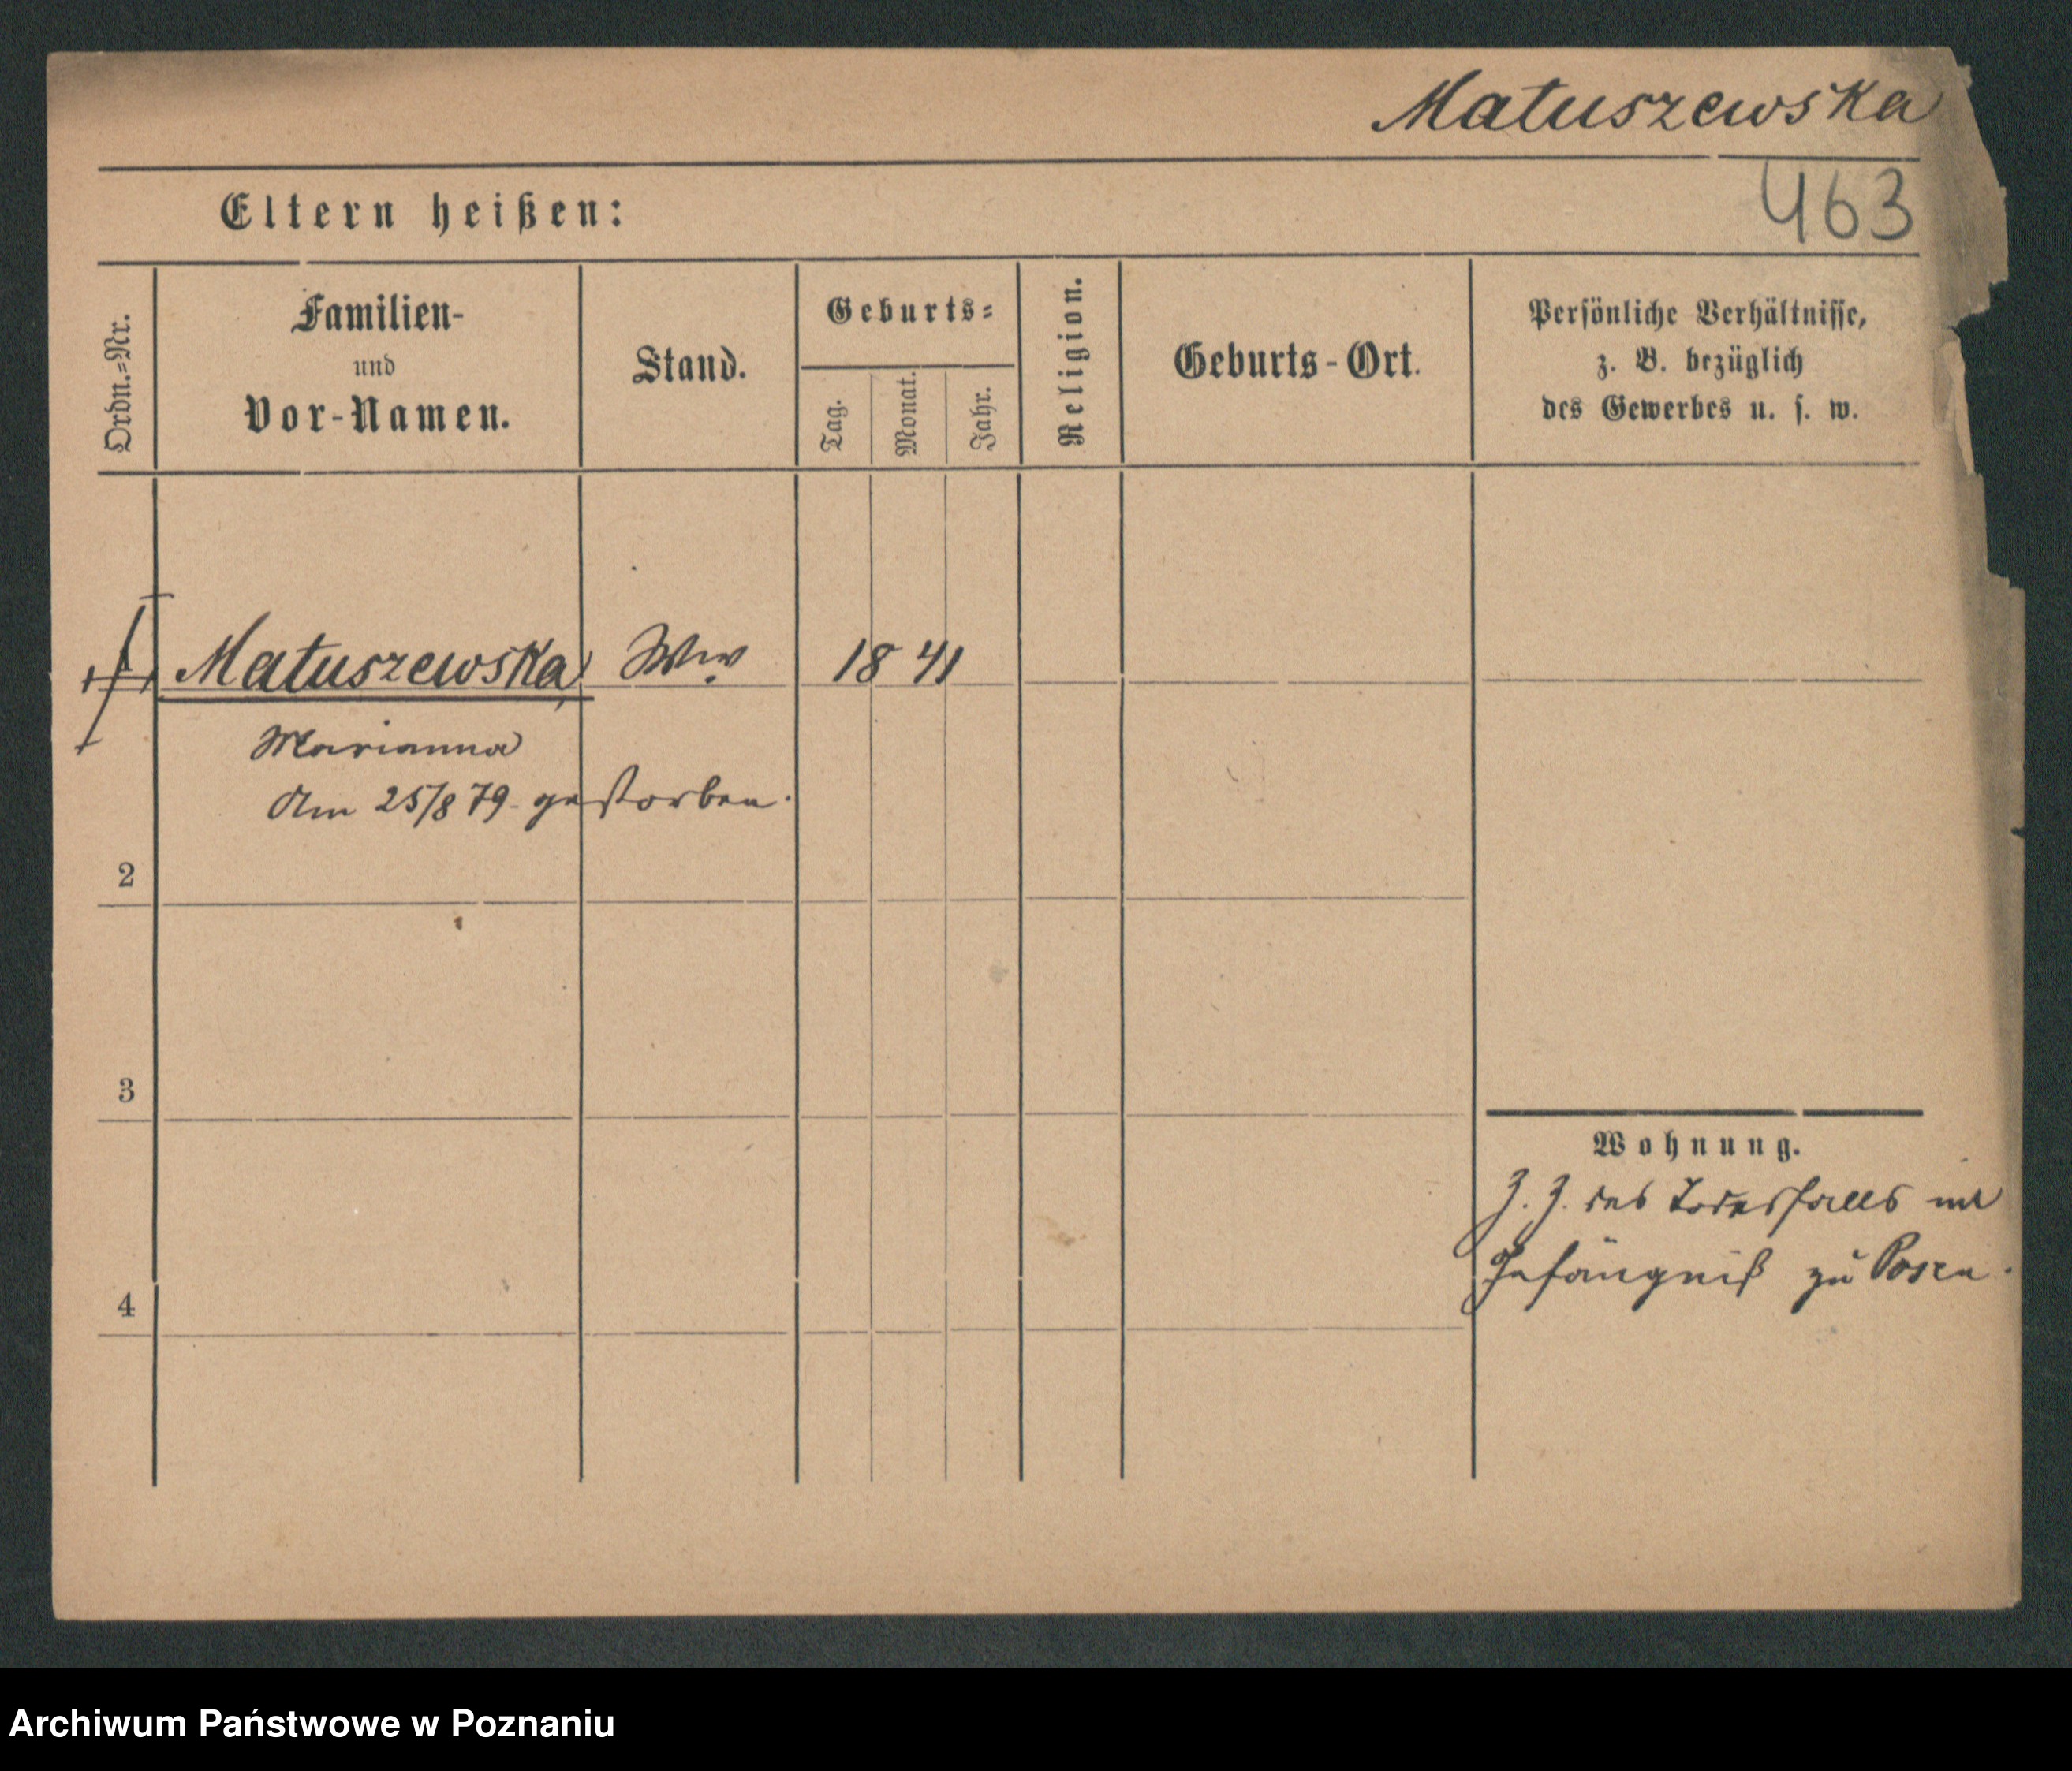 Matuszewska
463
Eltern heißen:
Ordn.-Nr.
Familien-
und
Vor-Namen.
Stand.
Geburts-
Tag.
Monat.
Jahr.
Religion.
Geburts-Ort.
Persönliche Verhältnisse,
z. B. bezüglich
des Gewerbes u. s. w.
Matuszewska, Ww. 1841
Marianna
Am 25/8 79. gestorben.
2
3
Wohnung.
Z. Z. des Todesfalls im
Gefängniß zu Posen.
4
Archiwum Państwowe w Poznaniu